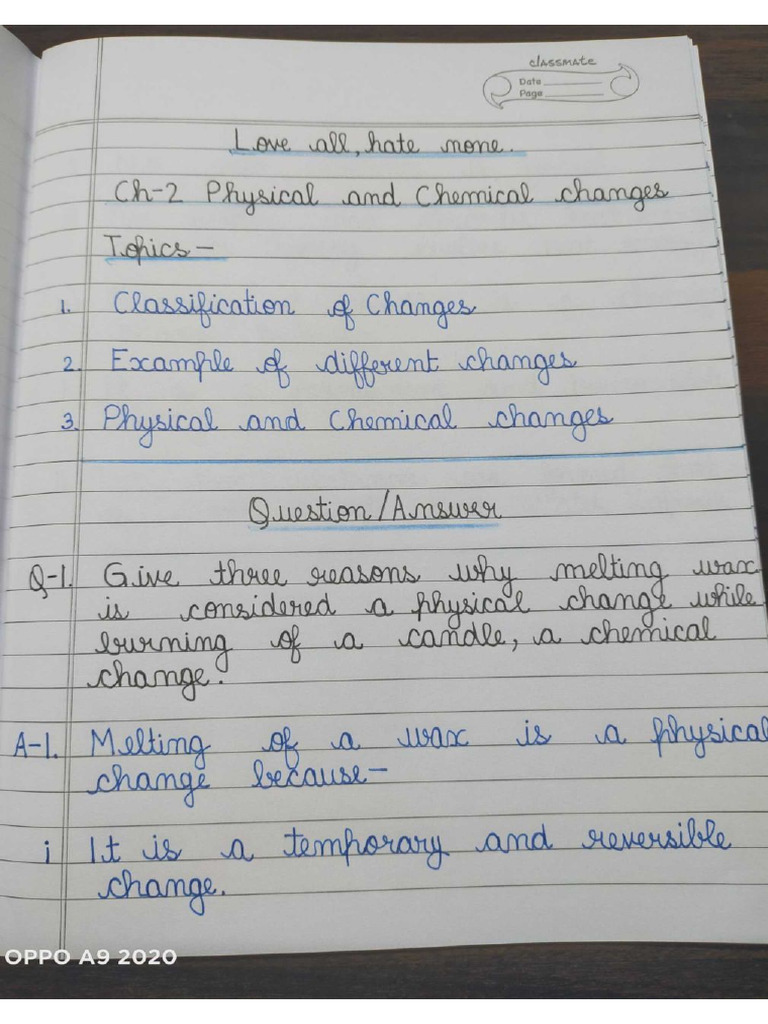 classmate
Date
Page
Love all, hate none.
Ch-2 Physical and Chemical changes
Topics -
1. Classification of Changes
2. Example of different changes
3. Physical and Chemical changes
Question/Answer
Q-1. Give three reasons why melting wax
is considered a physical change while
burning of a candle, a chemical
change.
A-1. Melting of a wax is a physical
change because-
i It is a temporary and reversible
change.
OPPO A9 2020